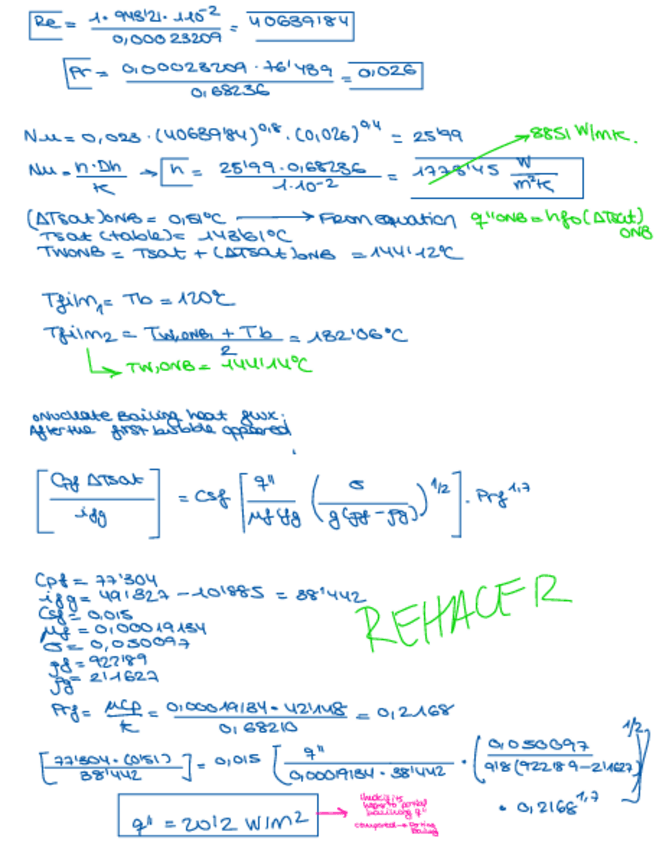 Re = 1 · 943'21 · 1·10⁻² / 0,00023209 = 40639'84
Pr = 0,00023209 · 76'439 / 0,68236 = 0,026
Nu = 0,023 · (40639'84)^0,8 · (0,026)^0,4 = 25'99
8851 W/mK.
Nu = h·Dh / K → h = 25'99 · 0,68236 / 1·10⁻² = 1773'45 W/m²K
(ΔTsat)ONB = 0,51°C → From equation q''ONB = hfo (ΔTsat) ONB
Tsat (table) = 143'61°C
TwONB = Tsat + (ΔTsat)ONB = 144'12°C
Tfilm₁ = Tb = 120°C
Tfilm₂ = Tw,ONB₁ + Tb / 2 = 132'06°C
TW,ONB = 144'14°C
Nucleate Boiling heat flux:
After the first bubble appeared
[Cpf ΔTsat / ifg] = Csf [q'' / μf ifg (σ / g(ρf - ρg))^1/2] · Prf^1,7
Cpf = 77'304
ifg = 491327 - 101885 = 38'442
Csf = 0,015
μf = 0,00019134
σ = 0,050097
ρf = 922'189
ρg = 2'1627
REHACER
Prf = μCp / K = 0,00019134 · 421148 / 0,68210 = 0,2168
[77'304 · (0'51) / 38'442] = 0,015 [q'' / 0,00019134 · 38'442 · (0,050097 / 9'8 (922'189 - 2'1627))]^1/2
· 0,2168^1,7
q'' = 2012 W/m²